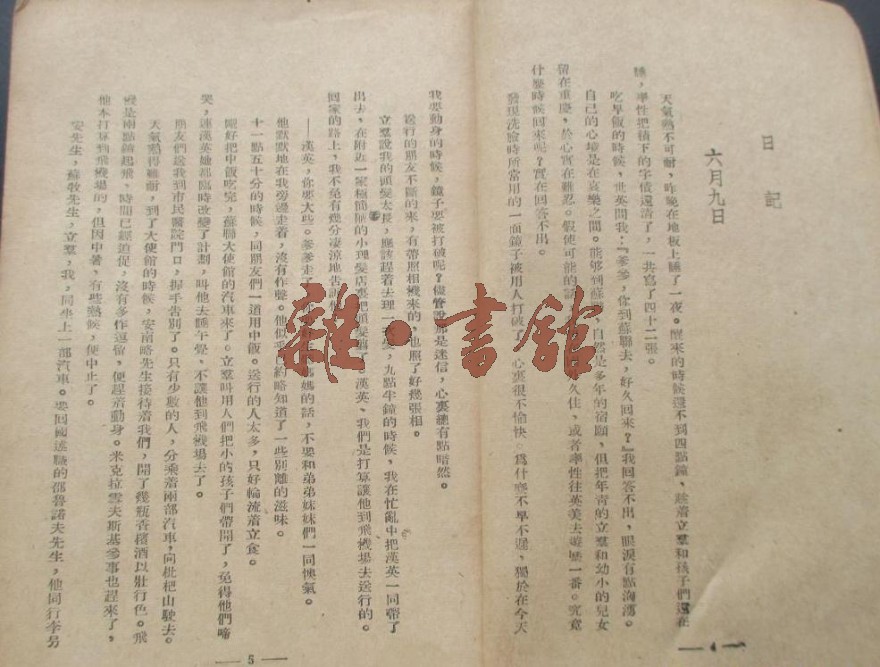 日記
六月九日
天氣熱不可耐,昨晚在地板上睡了一夜。醒來的時候還不到四點鐘,趁着立羣和孩子們還在
睡,率性把積下的字債還清了,一共寫了四十二張。
吃早飯的時候,世英問我:『爹爹,你到蘇聯去,好久回來?』我回答不出,眼淚有點洶湧。
自己的心境是在哀樂之間。能夠到蘇聯 自然是多年的宿願,但把年青的立羣和幼小的兒女
留在重慶,於心實在難忍。假使可能的話 久住,或者率性往英美去遊歷一番。究竟
什麼時候回來呢?實在回答不出。
發現洗臉時所常用的一面鏡子被用人打破了,心裏很不愉快。爲什麼不早不遲,獨於在今天
4
我要動身的時候,鏡子要被打破呢?儘管說那是迷信,心裏總有點暗然。
送行的朋友不斷的來,有帶照相機來的,也照了好幾張相。
立羣說我的頭髮太長,應該趕着去理一 髮,九點半鐘的時候,我在忙亂中把漢英一同帶了
出去,在附近一家極簡陋的小理髮店裏把頭髮剪了 漢英、我們是打算讓他到飛機場去送行的。
回家的路上,我不免有幾分凄涼地告訴
——漢英,你要大些。爹爹走了 媽媽的話,不要和弟弟妹妹們一同慪氣。
他默默地在我旁邊走着,沒有作聲。他似 約略知道了一些別離的滋味。
十一點五十分的時候,同朋友們一道用中飯。送行的人太多,只好輪流着立食。
剛好把中飯吃完,蘇聯大使館的汽車來了。立羣叫用人們把小的孩子們帶開了,免得他們啼
哭,連漢英她都臨時改變了計劃,叫他去睡午覺,不讓他到飛機場去了。
朋友們送我到市民醫院門口,握手告別了。只有少數的人,分乘着兩部汽車,向枇杷山駛去。
天氣熱得難耐,到了大使館的時候,安南略先生接待着我們,開了幾瓶香檳酒以壯行色。飛
機是兩點鐘起飛,時間已經逼促,沒有多作逗留,便趕着動身。米克拉雪夫斯基參事也趕來了,
他本打算到飛機場的,但因中暑,有些熱候,便中止了。
安先生,蘇牧先生,立羣,我,同坐上一部汽車。要回國述職的邵魯諾夫先生,他同行李另
5
雜·書館